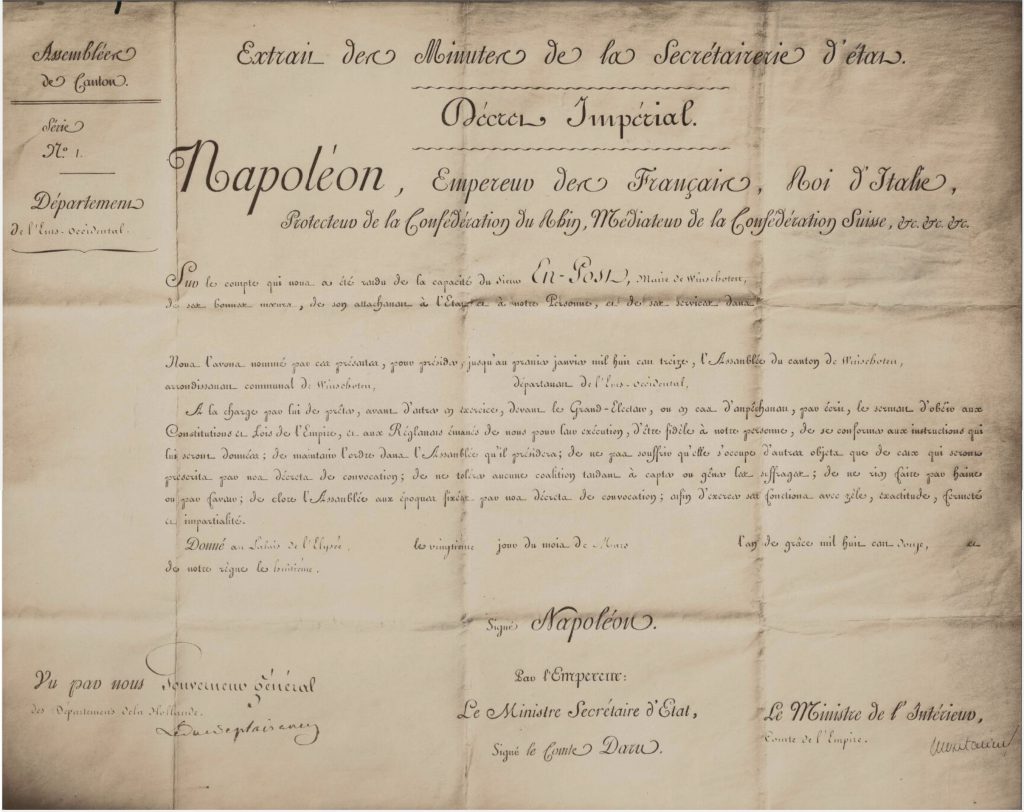 Assemblées
de Canton.
Série
N.o 1.
Département
de l'Ems-occidental.
Extrait des Minutes de la Secrétairerie d'état.
Décret Impérial.
Napoléon, Empereur des Français, Roi d'Italie,
Protecteur de la Confédération du Rhin, Médiateur de la Confédération Suisse, &c. &c. &c.
Sur le compte qui nous a été rendu de la capacité du Sieur En-Post, Maire de Winschoten,
de ses bonnes mœurs, de son attachement à l'Etat et à notre Personne, et de ses services dans
Nous l'avons nommé par ces présentes, pour présider, jusqu'au premier janvier mil huit cent treize, l'Assemblée du canton de Winschoten,
arrondissement communal de Winschoten, département de l'Ems-occidental,
A la charge par lui de prêter, avant d'entrer en exercice, devant le Grand-Electeur, ou en cas d'empêchement, par écrit, le serment d'obéir aux
Constitutions et Lois de l'Empire, et aux Réglemens émanés de nous pour leur exécution, d'être fidèle à notre personne, de se conformer aux instructions qui
lui seront données; de maintenir l'ordre dans l'Assemblée qu'il présidera; de ne pas souffrir qu'elle s'occupe d'autres objets que de ceux qui seront
prescrits par nos décrets de convocation; de ne tolérer aucune coalition tendant à capter ou gêner les suffrages; de ne rien faire par haine
ou par faveur; de clore l'Assemblée aux époques fixées par nos décrets de convocation; enfin d'exercer ses fonctions avec zèle, exactitude, fermeté
et impartialité.
Donné au Palais de l'Elysée, le vingtième jour du mois de Mars l'an de grâce mil huit cent douze, et
de notre règne le huitième.
Signé Napoléon.
Par l'Empereur:
Vu par nous Gouverneur général
des Départemens de la Hollande.
Le Duc de plaisance
Le Ministre Secrétaire d'Etat,
Signé le Comte Daru.
Le Ministre de l'Intérieur,
Comte de l'Empire.
Montalivet